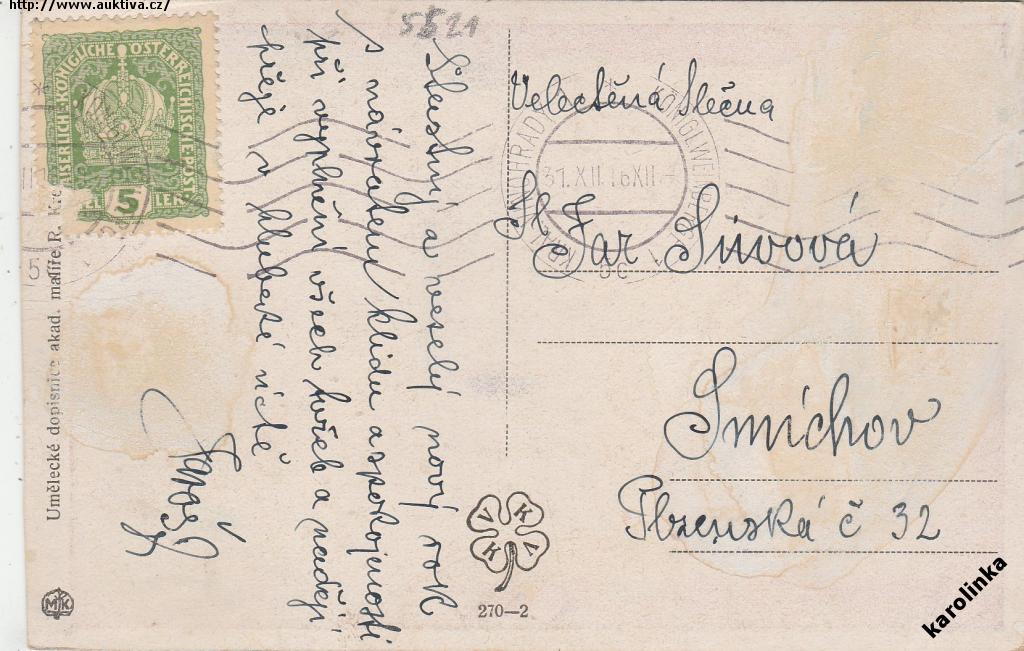 http://www.auktiva.cz/
5521
KAISERLICH-KÖNIGLICHE ÖSTERREICHISCHE POST
5
HELLER
Šťastný a veselý nový rok
s návratem klidu a spokojenosti
při vyplnění všech tužeb a nadějí
přeje v hluboké úctě
Umělecké dopisnice akad. malíře R.
MK
31.XII.16XII
Velectěná Slečna
Sl. Jar
Smíchov
Plzenská č 32
V K
K V
270—2
karolinka